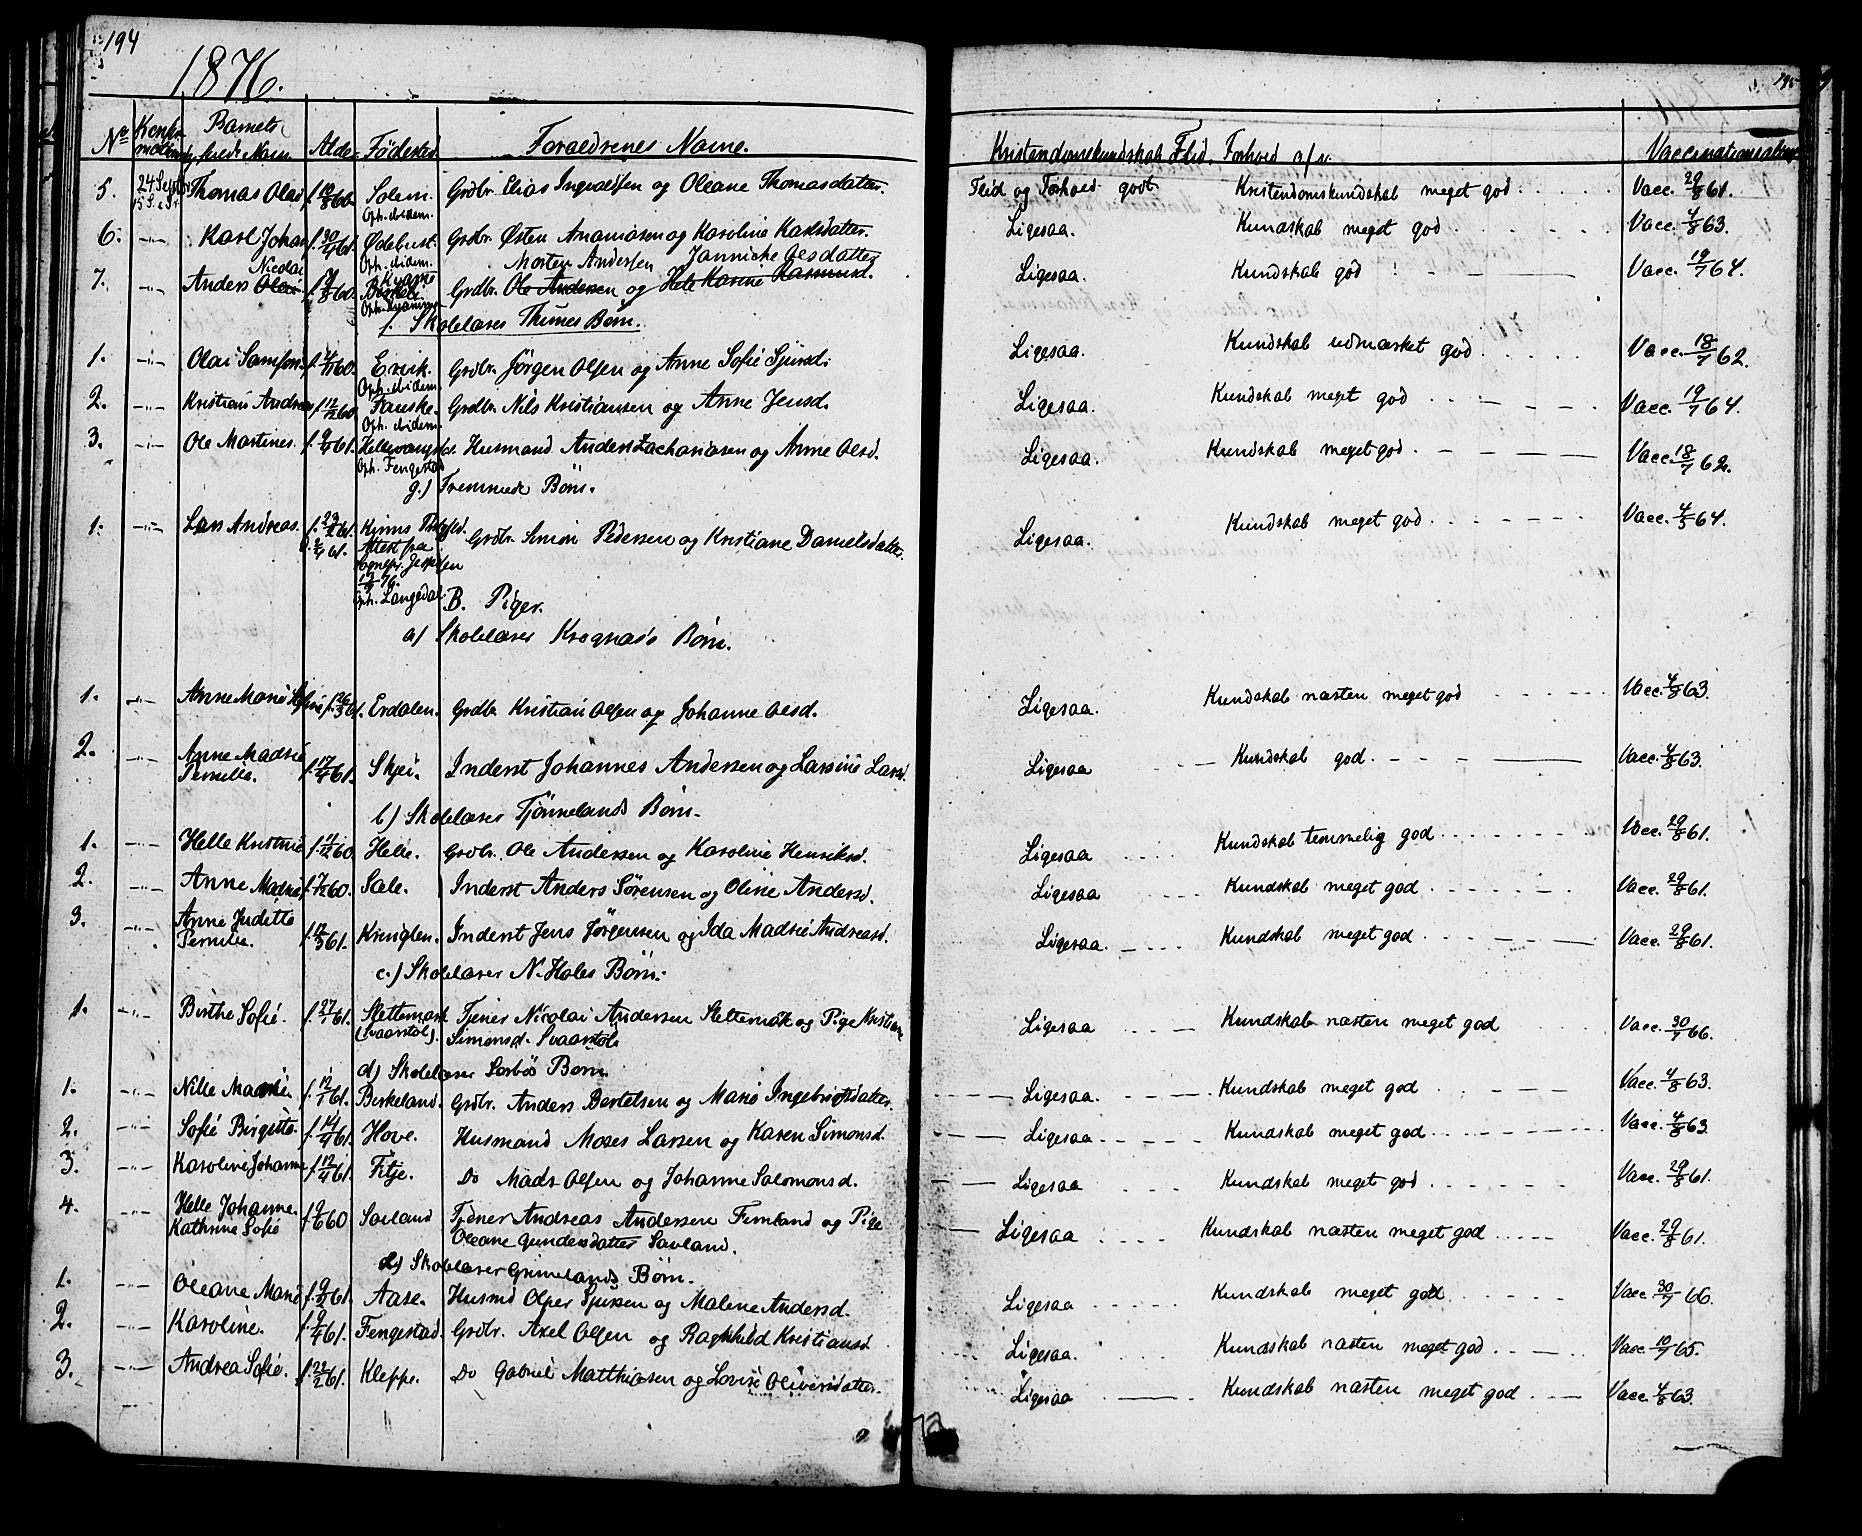 194
1876.
195
No Konfirmation Barnets fulde Navn. Alder Fødested Forældrenes Navne. Kristendomskundskab, Flid, Forhold o/s v. Vaccinationsattest
5. 24 Septbr. Thomas Olai f. 10/8 60. Solem. Oph. ibidem. Grdbr. Elias Ingvaldsen og Oleane Thomasdatter. Flid og Forhold godt. Kristendomskundskab meget god Vacc. 29/8 61.
6. -"- Karl Johan f. 30/4 61. Ødebust. Oph. ibidem. Grdbr. Østen Ananiasen og Karoline Karlsdatter. Ligesaa. Kundskab meget god Vacc. 4/8 63.
7. -"- Anders Olai Nicolai Oph. Grdbr. Ole Andersen og Hele Karine Rasmusd. Morten Andersen Jannicke Olsdatter Ligesaa. Kundskab god Vacc. 19/7 64.
f. Skolelærer Thunes Børn.
1. -"- Olai Samson. Ervik. Oph. ibidem. Grdbr. Jørgen Olsen og Anne Sofie Sjursd. Ligesaa. Kundskab udmærket god Vacc. 18/7 62.
2. -"- Kristian Andreas f. 12/12 60. Fauske. Oph. ibidem. Grdbr. Nils Kristiansen og Anne Jensd. Ligesaa. Kundskab meget god Vacc. 19/7 64.
3. -"- Ole Martines. f. 9/4 61. Hellevang Oph. Fengestad Husmand Anders Zachariasen og Anne Olsd. Ligesaa. Kundskab meget god Vacc. 18/7 62.
g.) Fremmede Børn.
1. -"- Lars Andreas. f. 29/2 61. Kinns Attest fra Sognepr. 76. Oph. Langedal. Grdbr. Simon Pedersen og Kristiane Danielsdatter. Ligesaa. Kundskab meget god Vacc. 4/5 64.
B. Piger.
a) Skolelærer Krognæs's Børn.
1. -"- Anne Marie Sofie f. 26/3 61. Erdalen. Grdbr. Kristian Olsen og Johanne Olsd. Ligesaa. Kundskab næsten meget god Vacc. 4/8 63.
2. -"- Anne Madrie Pernille. f. 17/4 61. Skjei. Inderst Johannes Andersen og Larsine Larsd. Ligesaa Kundskab god Vacc. 4/8 63.
b) Skolelærer Tjønnelands Børn.
1. -"- Helle Kristine f. 11/12 60. Helle. Grdbr. Ole Andersen og Karoline Henriksd. Ligesaa Kundskab temmelig god Vacc. 29/8 61.
2. -"- Anne Madrie Sale. Inderst Anders Sørensen og Oline Andersd. Ligesaa Kundskab meget god Vacc. 29/8 61.
3. -"- Anne Juditte Pernille. Kringlen. Inderst Jens Jørgensen og Ida Madrie Andreasd. Ligesaa. Kundskab meget god Vacc. 29/8 61.
c.) Skolelærer N. Holes Børn.
1. -"- Birthe Sofie. f. 27/1 61. Slettemark (Svaarstøl). Tjener Nicolai Andersen Slettemark og Pige Kristiane Simonsd. Svaarstøl Ligesaa Kundskab næsten meget god Vacc. 30/7 66.
d) Skolelærer Sørbøs Børn
1. -"- Nille Madrie. f. 12/1 61. Birkeland. Grdbr. Anders Bertelsen og Marie Ingebrigtsdatter. Ligesaa. Kundskab meget god Vacc. 4/8 63.
2. -"- Sofie Birgitte. f. 14/4 61. Hove. Husmand Moses Larsen og Karen Simonsd. Ligesaa. Kundskab meget god Vacc. 4/8 63
3. -"- Karoline Johanne f. 12/4 61. Fitje. Do Mads Olsen og Johanne Salomonsd. Ligesaa Kundskab meget god Vacc. 29/8 61.
4. -"- Helle Johanne Kathrine Sofie Savland Tjener Andreas Andersen Fimland og Pige Oleane Gundersdatter Savland. Ligesaa Kundskab næsten meget god Vacc. 29/8 61.
e) Skolelærer Grimelands Børn.
1. -"- Oleane Marie Aase. Husmd Olger Sjursen og Malene Andersd. Ligesaa Kundskab meget god Vacc. 30/7 66.
2. -"- Karoline. Fengestad. Grdbr. Axel Olsen og Ragnhild Kristiansd. Ligesaa. Kundskab næsten meget god Vacc. 10/7 65.
3. -"- Andrea Sofie. f. 22/2 61. Kleppe. Do Gabriel Matthiasen og Lovise Oliversdatter. Ligesaa Kundskab næsten meget god Vacc. 4/8 63.